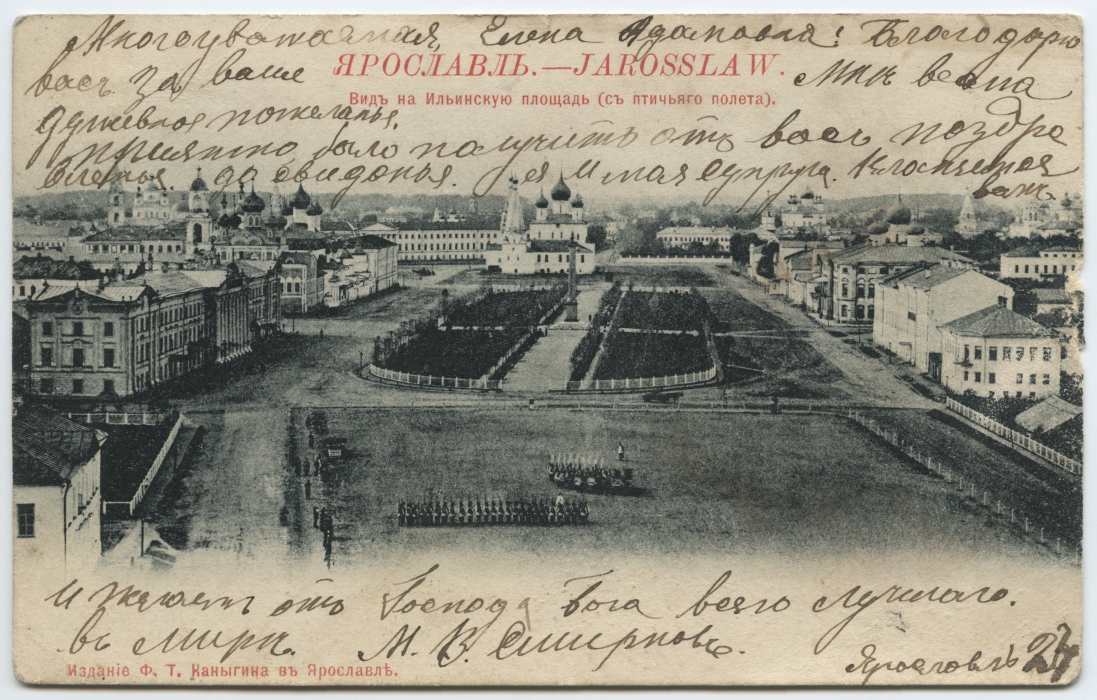 Многоуважаемая, Елена Адамовна! Благодарю
ЯРОСЛАВЛЬ.—JAROSSLAW.
васъ за ваше Мнѣ весма
Видъ на Ильинскую площадь (съ птичьяго полета).
душевное пожеланье,
приятно было получить отъ васъ поздра
вленья до свиданья. я и моя супруга. кланяемся
вамъ
и желаем отъ Господа Бога всего лучшаго.
въ мирѣ. М. В. Смирновъ.
Изданіе Ф. Т. Каныгина въ Ярославлѣ.
Ярославль